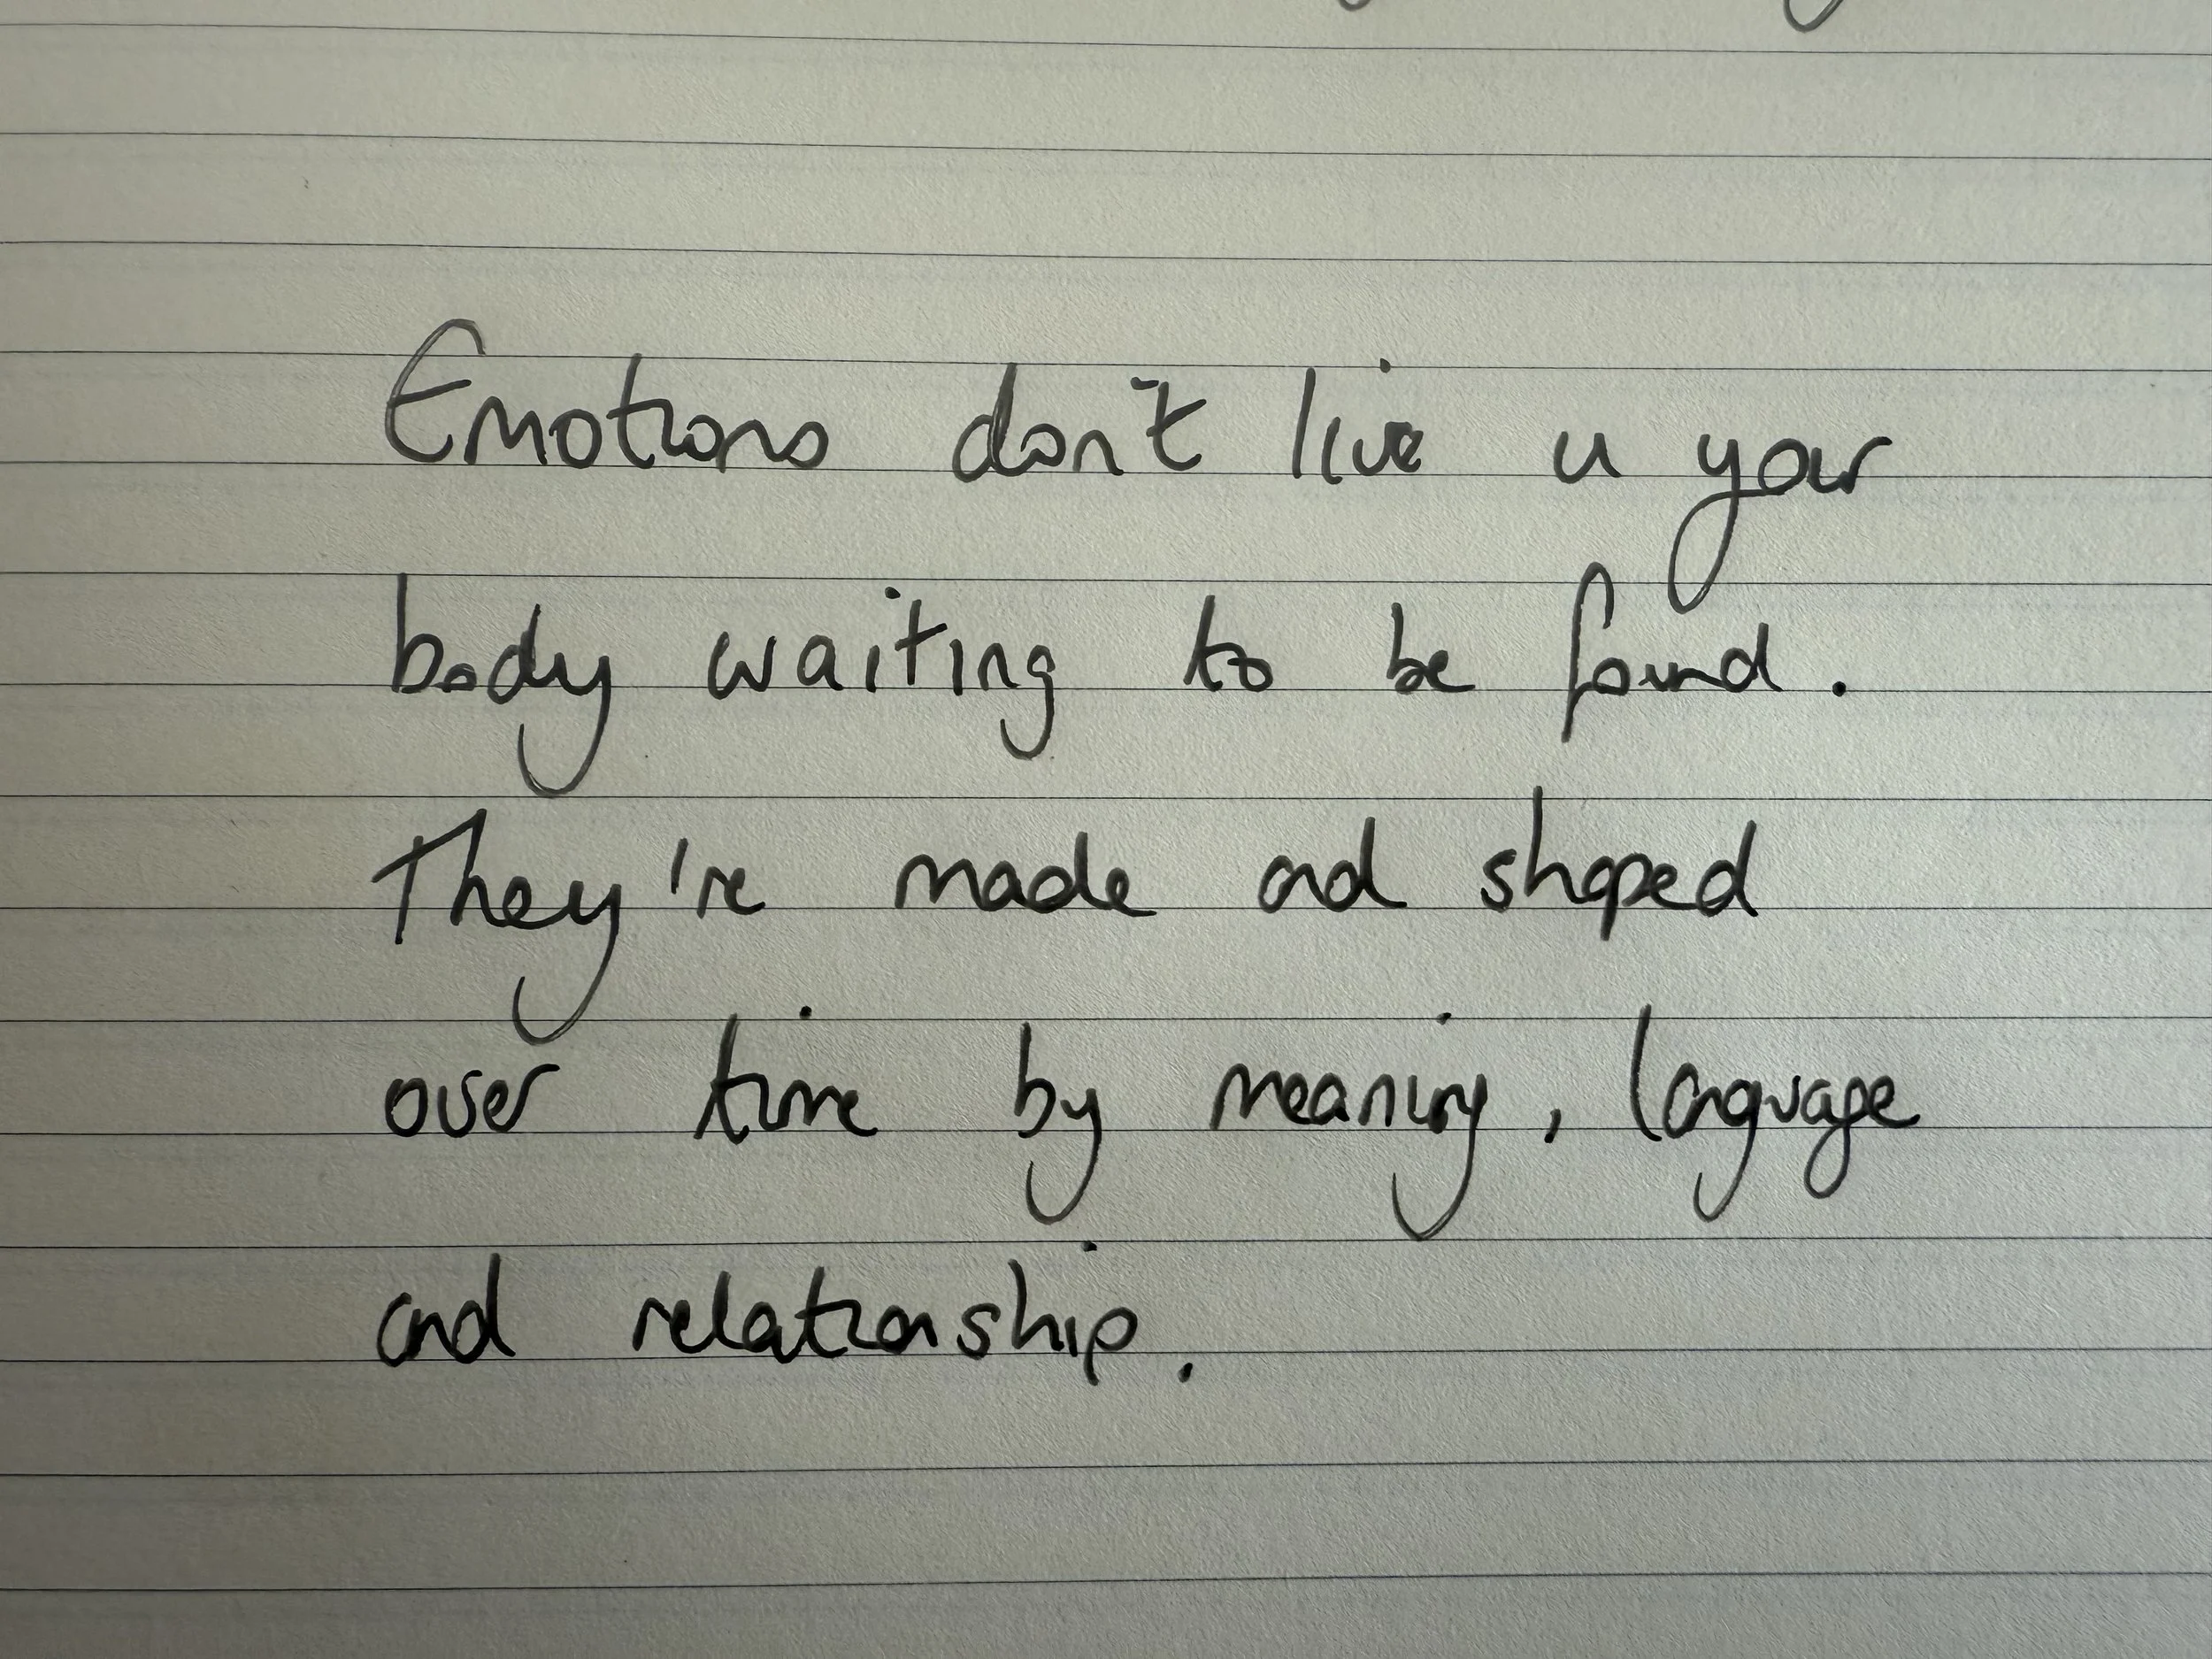 Emotions don't live in your
body waiting to be found.
They're made and shaped
over time by meaning, language
and relationship.